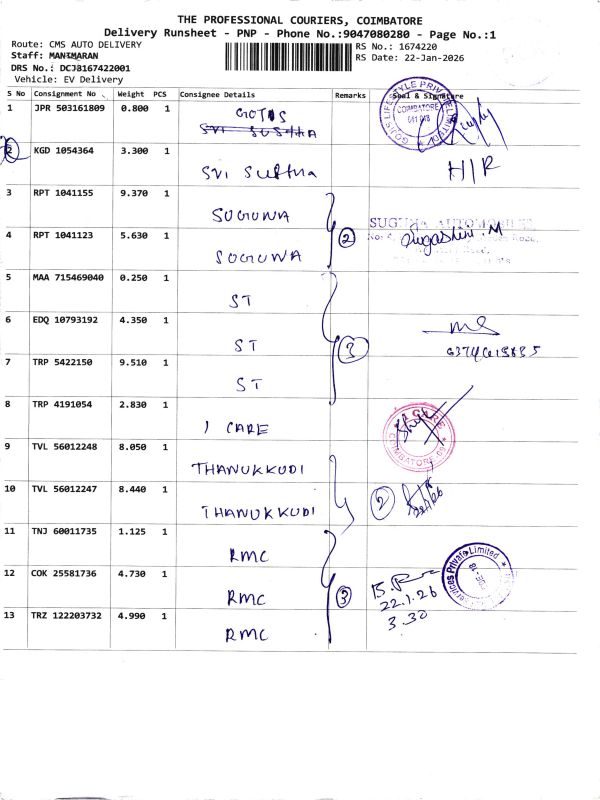 THE PROFESSIONAL COURIERS, COIMBATORE
Delivery Runsheet - PNP - Phone No.:9047080280 - Page No.:1
Route: CMS AUTO DELIVERY
RS No.: 1674220
Staff: MANIMARAN
RS Date: 22-Jan-2026
DRS No.: DCJB167422001
Vehicle: EV Delivery
S No Consignment No Weight PCS Consignee Details Remarks Seal & Signature
1 JPR 503161809 0.800 1
2 KGD 1054364 3.300 1 H/R
3 RPT 1041155 9.370 1 SUGUNA
SUGUNA AUTOMOBILES
4 RPT 1041123 5.630 1 SUGUNA 2
5 MAA 715469040 0.250 1 ST
6 EDQ 10793192 4.350 1 ST 3
7 TRP 5422150 9.510 1 ST
8 TRP 4191054 2.830 1 I CARE
COIMBATORE
9 TVL 56012248 8.050 1 THANUKKUDI
10 TVL 56012247 8.440 1 THANUKKUDI 2
11 TNJ 60011735 1.125 1 RMC
12 COK 25581736 4.730 1 RMC 3
22.1.26
3.30
Services Private Limited
13 TRZ 122203732 4.990 1 RMC